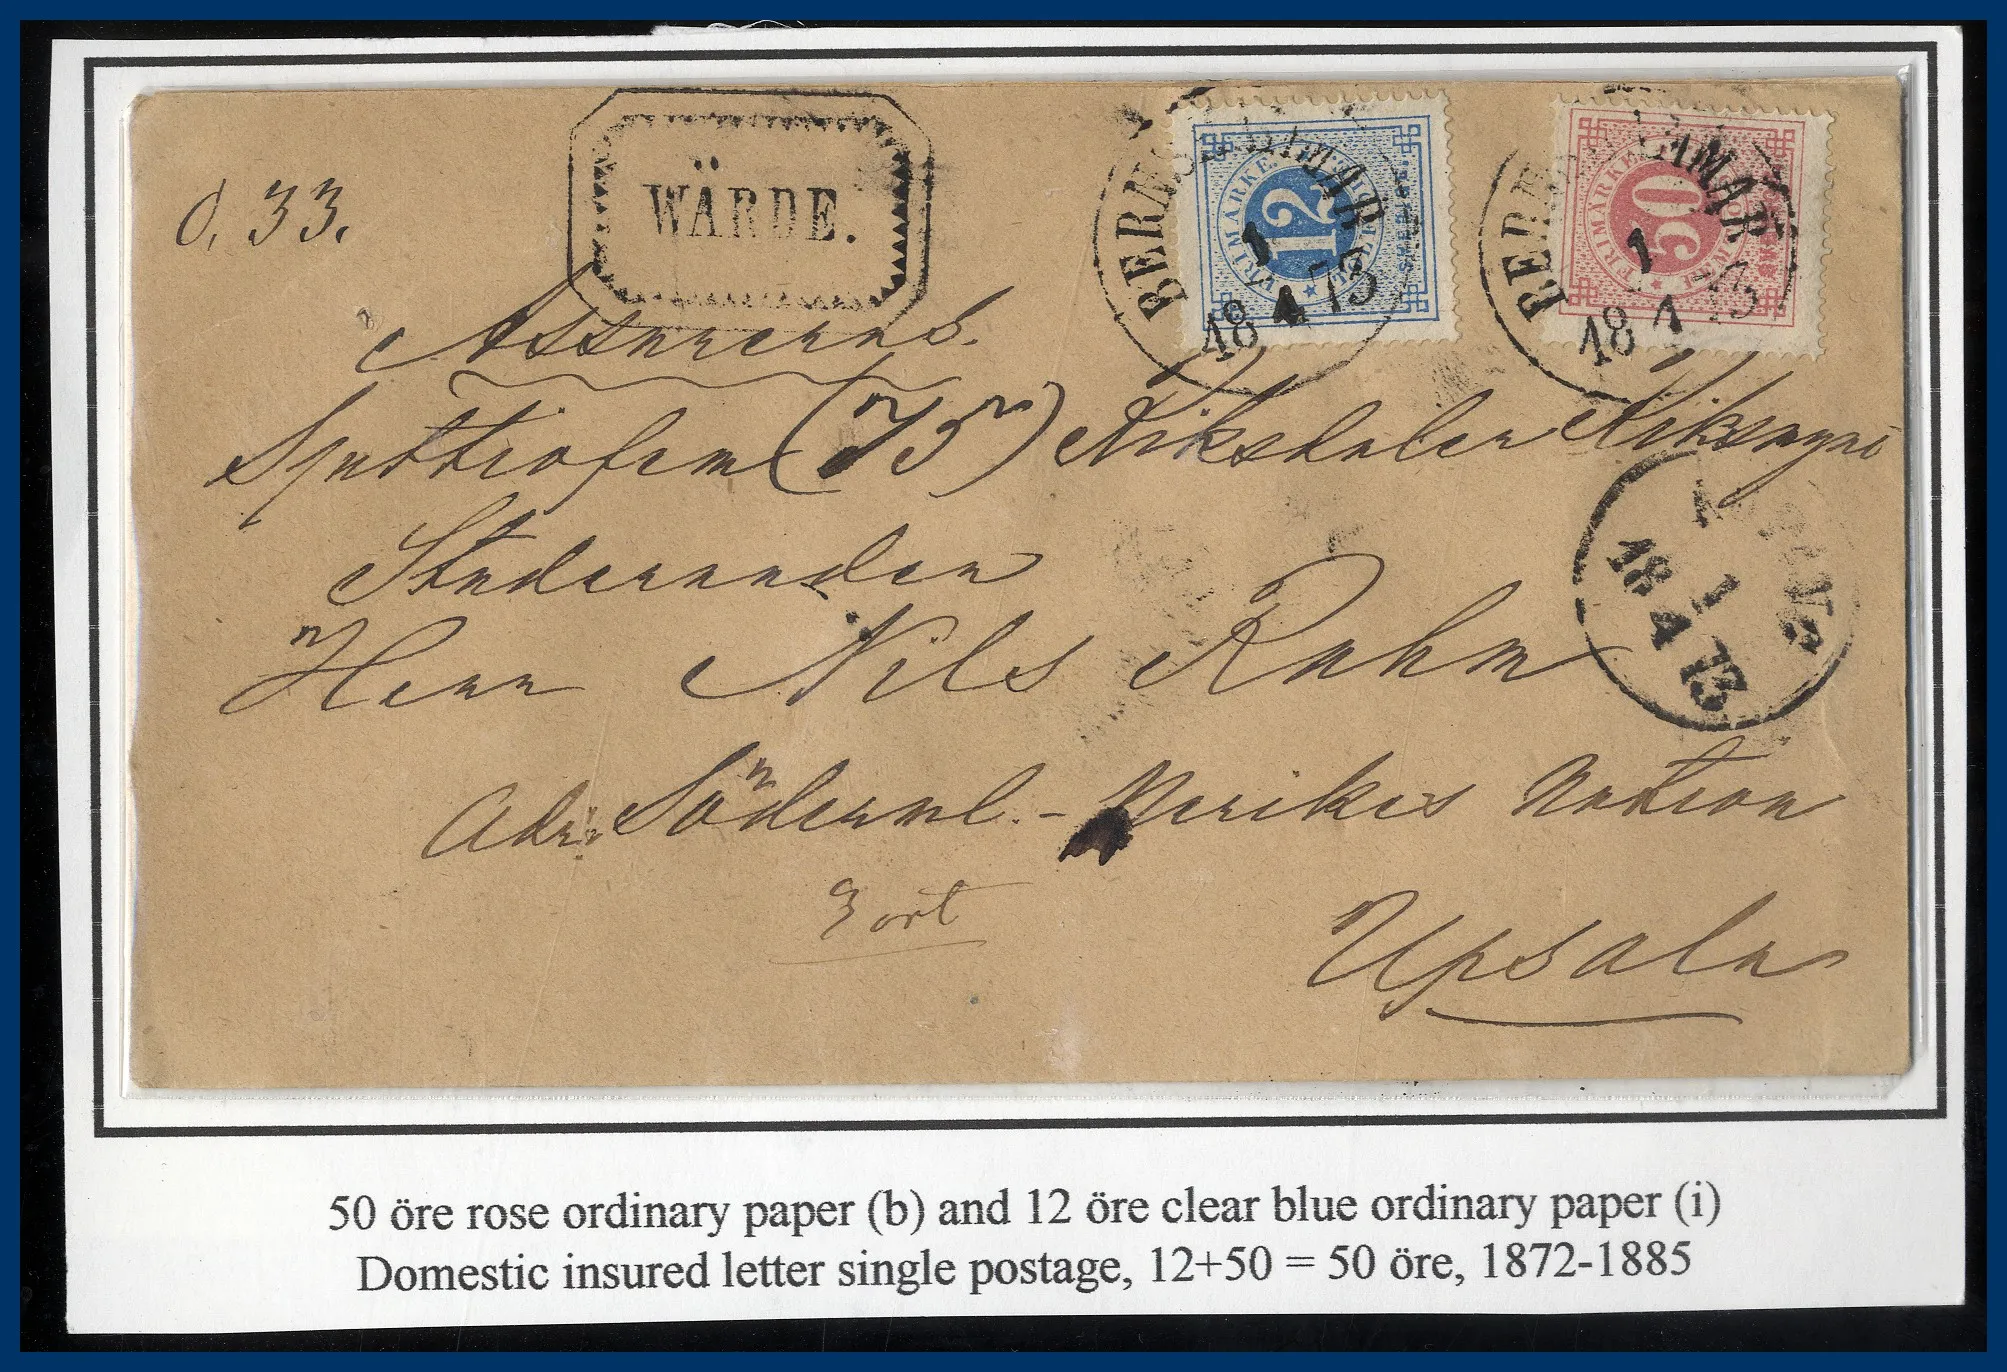 WÄRDE.
d, 33.
FRIMÄRKE
12
FRIMÄRKE
50
BERNSHAMMAR
1
18 4 73
BERNSHAMMAR
1
18 4 73
Assureras.
Sjuttiofem (75) Riksdaler Riksmynt
Studeranden
Herr Nils Rahm
Adr. Söderml.-Nerikes Nation
Upsala
1
18 4 73
50 öre rose ordinary paper (b) and 12 öre clear blue ordinary paper (i)
Domestic insured letter single postage, 12+50 = 50 öre, 1872-1885